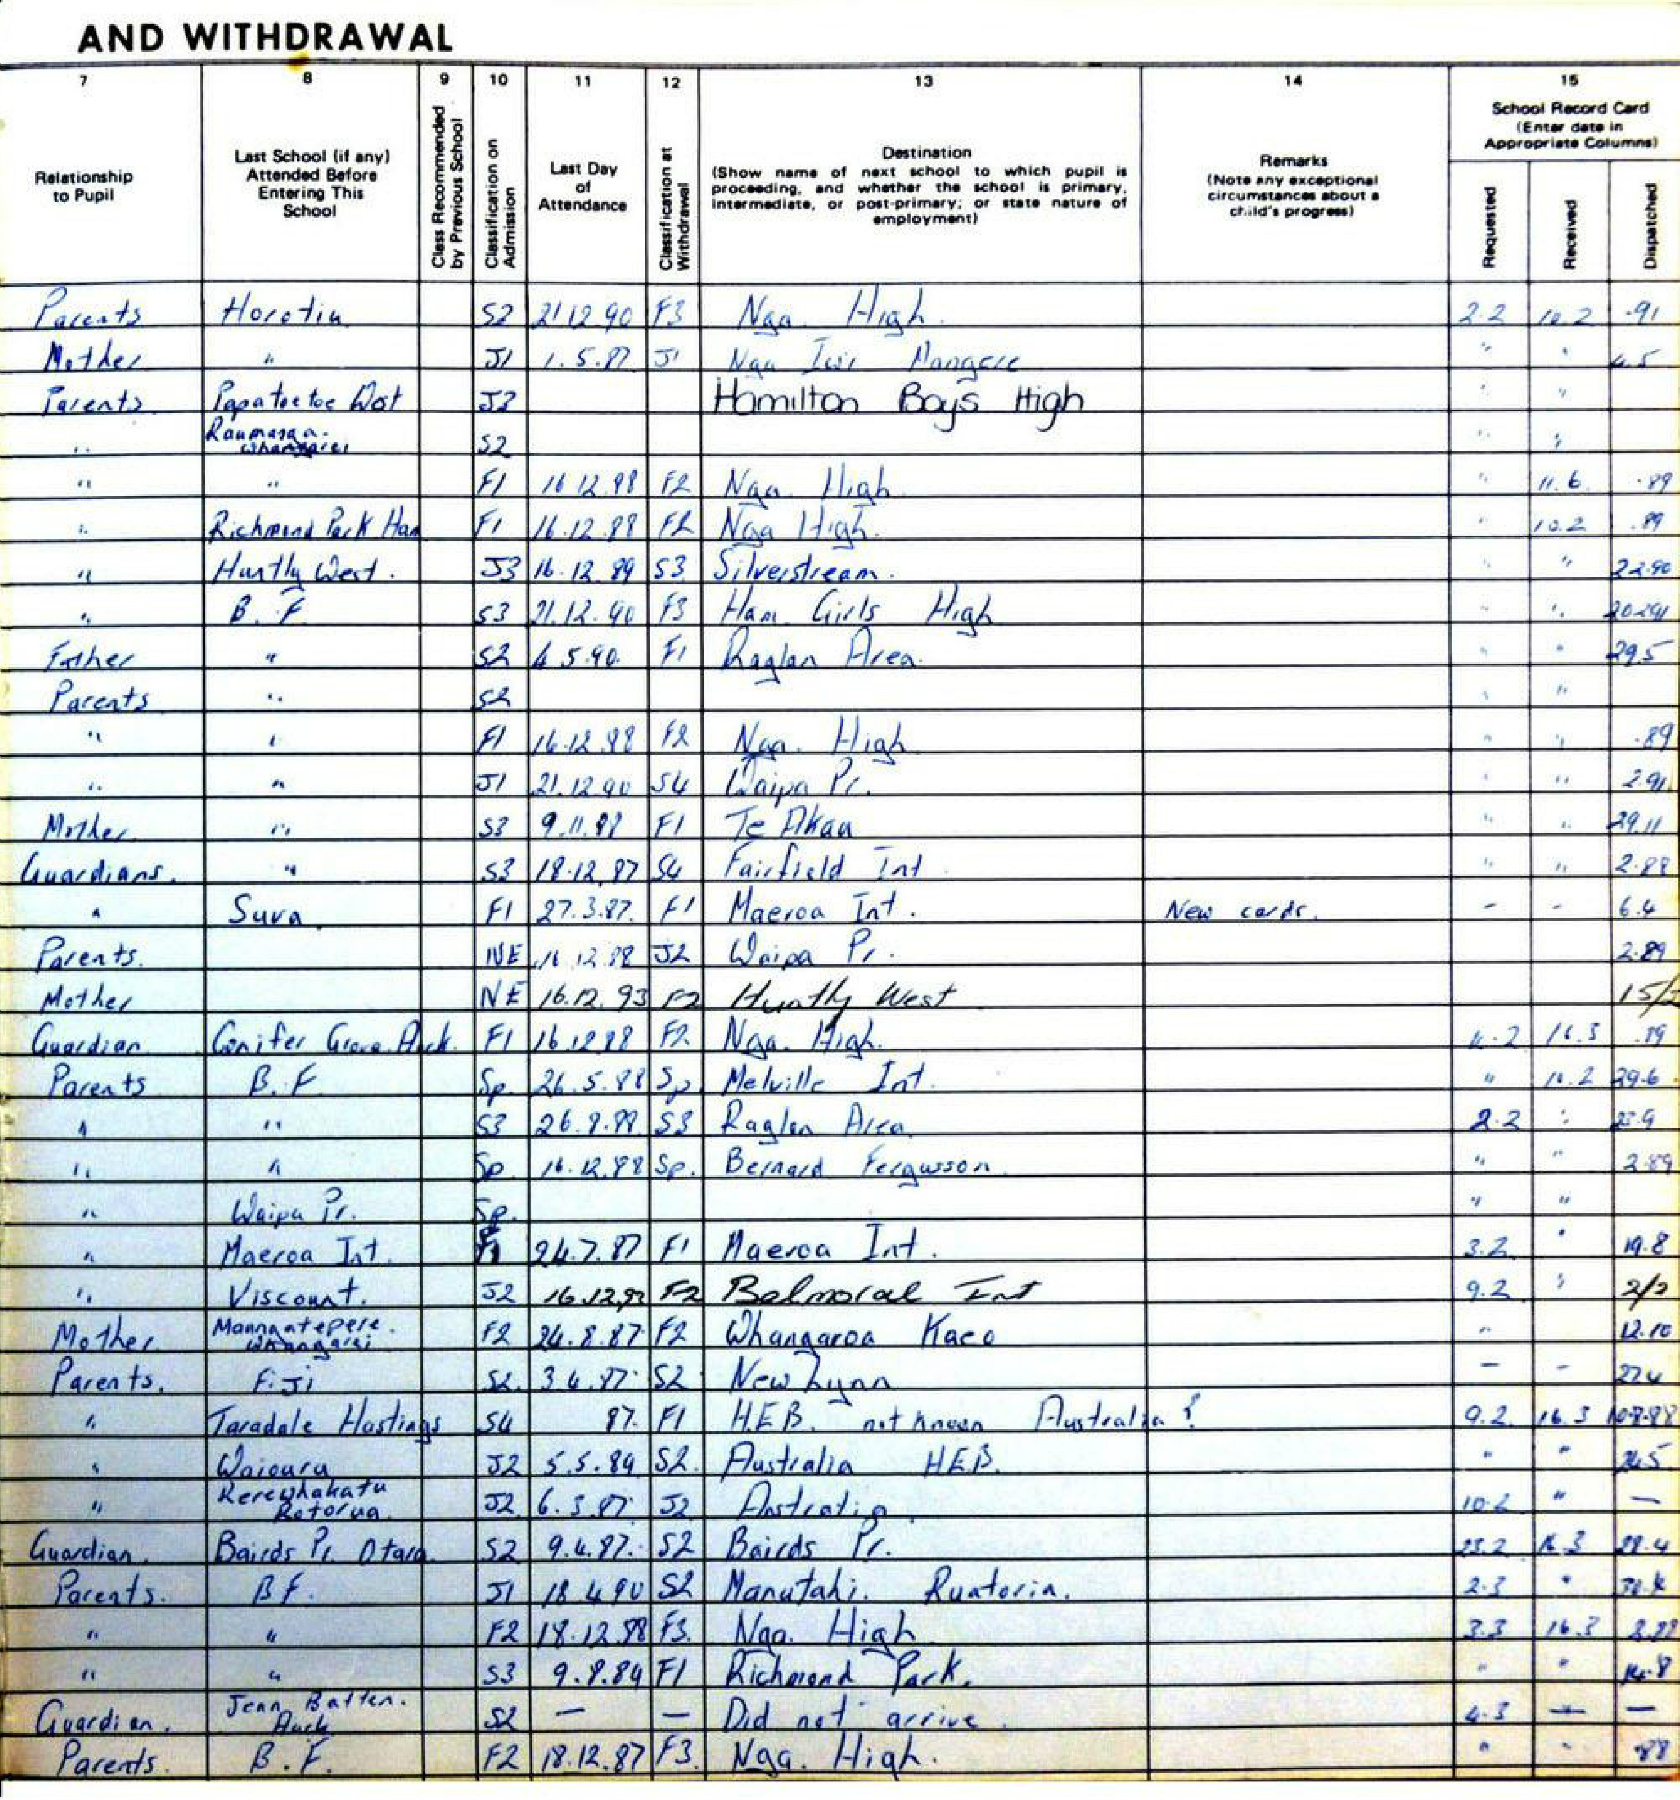 AND WITHDRAWAL
7 8 9 10 11 12 13 14 15
Relationship to Pupil
Last School (if any) Attended Before Entering This School
Class Recommended by Previous School
Classification on Admission
Last Day of Attendance
Classification at Withdrawal
Destination
(Show name of next school to which pupil is proceeding, and whether the school is primary, intermediate, or post-primary; or state nature of employment)
Remarks
(Note any exceptional circumstances about a child's progress)
School Record Card
(Enter date in Appropriate Columns)
Requested Received Dispatched
Parents Horotiu S2 21 12 90 F3 Nga. High. 2.2 10.2 .91
Mother " J1 1.5.87 J1 Nga Iwi Mangere " " 4.5
Parents Papatoetoe West J3 Hamilton Boys High " "
" Whangarei S2 " "
" " F1 16 12 88 F2 Nga. High " 11.6 .89
" Richmond Park Ham F1 16.12.88 F2 Nga High. " 10.2 .89
" Huntly West. J3 16.12.89 S3 Silverstream. " " 2.2.90
" B.F. S3 21.12.90 F3 Ham. Girls High " " 20291
Father " S2 4 5.90. F1 Raglan Area. " " 29.5
Parents " S2 " "
" " F1 16.12.88 F2 Nga. High " " .89
" " J1 21.12.90 S4 Waipa Pr. " " 2.91.
Mother " S3 9.11.88 F1 Te Akau " " 29.11
Guardians. " S3 18.12.87 S4 Fairfield Int " " 2.88
" Suva F1 27.3.87. F1 Maeroa Int. New cards. - - 6.4
Parents. NE 16.12.88 J2 Waipa Pr. 2.89
Mother NE 16.12.93 F2 Huntly West 15/2
Guardian Conifer Grove Auck. F1 16.12.88 F2. Nga. High. 16.3 .89
Parents B.F Sp. 26.5.88 Sp. Melville Int. " 10.2 29.6
" " S3 26.8.88. S3 Raglan Area. 2.2 "
" " Sp. 16.12.88 Sp. Bernard Fergusson. " " 2.89
" Waipa Pr. Sp. " "
" Maeroa Int. F1 24.7.87 F1 Maeroa Int. 3.2 " 19.8
" Viscount. J2 16.12.92 F2 Balmoral Int 9.2 " 2/2
Mother Whangarei F2 24.8.87 F2 Whangaroa Kaeo " 12.10
Parents. Fiji S2. 3 4.87. S2 New Lynn - - 27.4
" Taradale Hastings S4 87. F1 H.E.B. not known Australia ? 9.2. 16.3 10.8.88
" Waioura J2 5.5.89 S2. Australia H.E.B. " "
" Kerewhakatu Rotorua J2 6.3.87. J2 Australia. 10.2 " -
Guardian. Bairds Pr. Otara S2 9.4.87. S2 Bairds Pr. 25.2 16.3 28.4
Parents. B.F. J1 18 4 90 S2 Manutahi. Ruatoria. 2.3 "
" " F2 18.12.88 F3. Nga. High 3.3 16.3
" " S3 9.8.89 F1 Richmond Park. " " 14.8
Guardian. Jean Batten. Auck S2 - - Did not arrive. 4.3 - -
Parents. B.F. F2 18.12.87 F3. Nga. High. " " .88